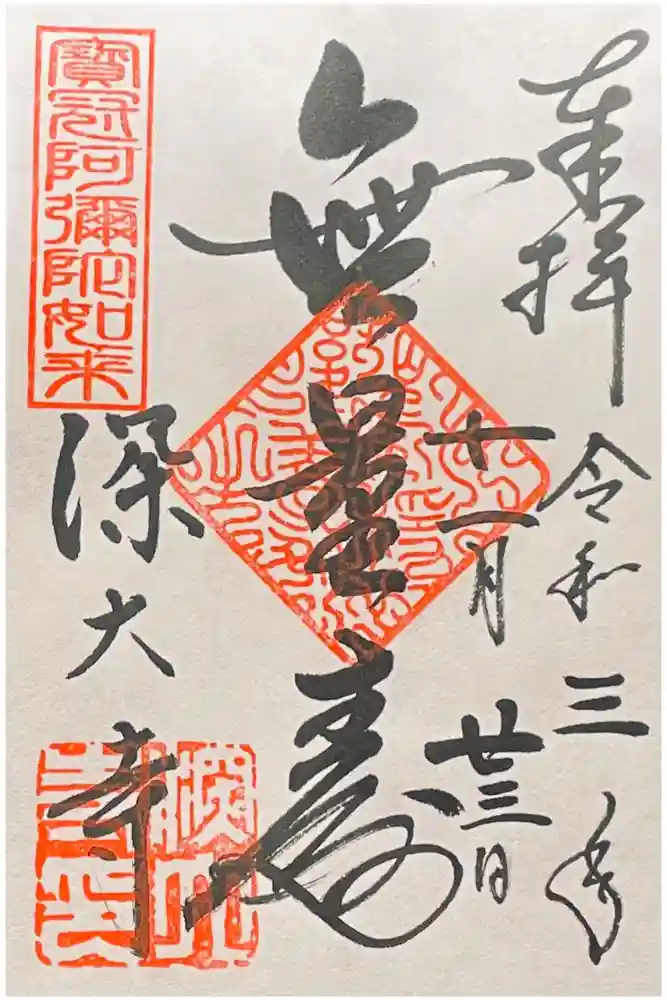 奉拝
令和三年
十一月
廿三日
無量寿
寶冠阿彌陀如来
深大寺